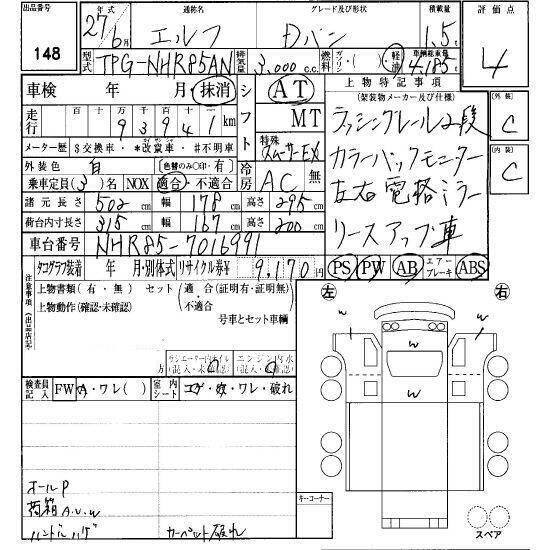 出品番号 年式 通称名 グレード及び形状 積載量 評価点
148 27年6月 エルフ Dバン 1.5t 4
型式 TPG-NHR85AN 排気量 3,000c.c. 燃料 ガソリン・( )・軽油 車輌総重量 4,185t
車検 年 月・抹消 シフト AT 上物特記事項
MT (架装物メーカー及び仕様) 外装 C
走行 十万 万 千 百 十 一
93941km
ラッシングレール2段
メーター歴 $交換車・*改竄車・#不明車 特殊 スムーサーEX カラーバックモニター 内装 C
外装色 白 (色替のみ○印・有) 冷房 AC 無
左右電格ミラー
乗車定員(3)名 NOX 適合・不適合
諸元長さ 502cm 幅 178cm 高さ 295cm
リースアップ車
荷台内寸長さ 315cm 幅 167cm 高さ 200cm
車台番号 NHR85-7016991
PS PW AB エアーブレーキ ABS
注意事項(出品店記入)
タコグラフ装着 年 月・別体式 リサイクル券¥ 9,170円
上物書類(有・無) セット(適合(証明有・証明無)・不適合)
上物動作(確認・未確認) 号車とセット車輌
左 右
w
w
w
w
エンジン内水
検査員記入 FW A・ワレ( ) 室内シート コゲ・穴・ワレ・破れ
オールP
荷箱A.U.W
ハンドルハゲ カーペット破れ
キーコーナー
スペア